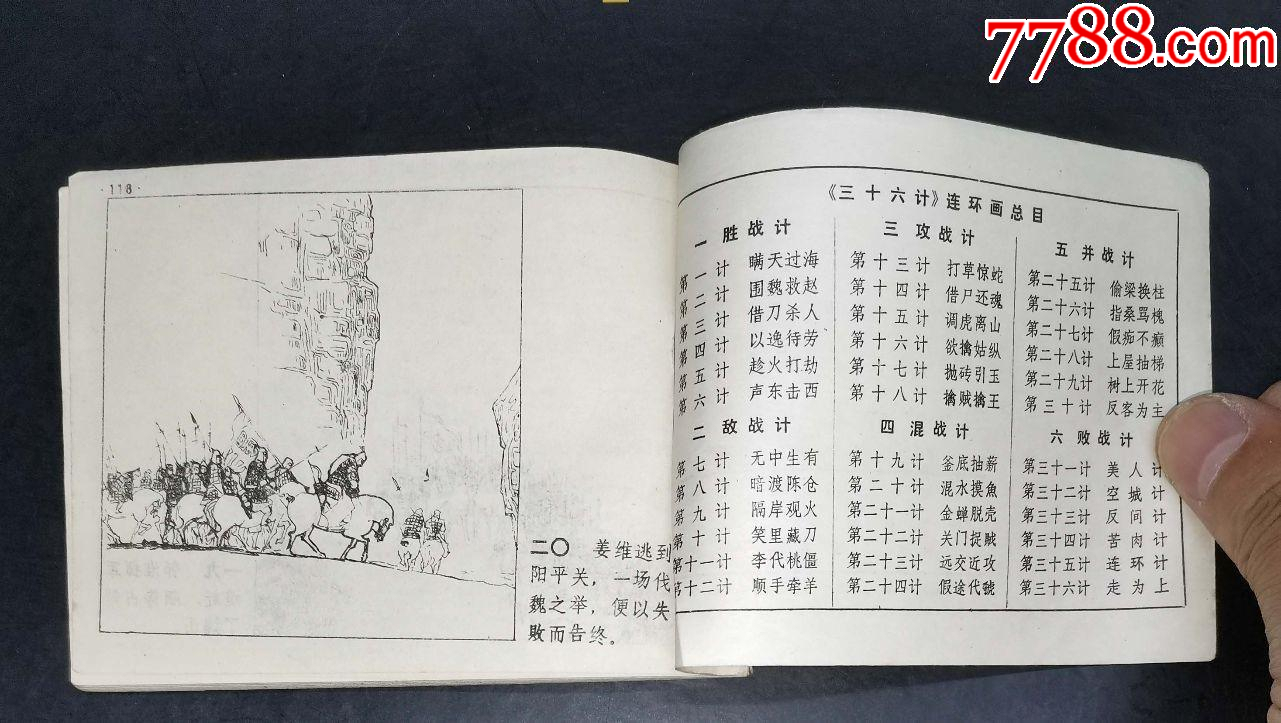 7788.com
·118·
二〇 姜维逃到
阳平关，一场伐
魏之举，便以失
败而告终。
《三十六计》连环画总目
一 胜战计
第一计 瞒天过海
第二计 围魏救赵
第三计 借刀杀人
第四计 以逸待劳
第五计 趁火打劫
第六计 声东击西
二 敌战计
第七计 无中生有
第八计 暗渡陈仓
第九计 隔岸观火
第十计 笑里藏刀
第十一计 李代桃僵
第十二计 顺手牵羊
三 攻战计
第十三计 打草惊蛇
第十四计 借尸还魂
第十五计 调虎离山
第十六计 欲擒姑纵
第十七计 抛砖引玉
第十八计 擒贼擒王
四 混战计
第十九计 釜底抽薪
第二十计 混水摸魚
第二十一计 金蝉脱壳
第二十二计 关门捉贼
第二十三计 远交近攻
第二十四计 假途伐虢
五 并战计
第二十五计 偷梁换柱
第二十六计 指桑骂槐
第二十七计 假痴不癫
第二十八计 上屋抽梯
第二十九计 树上开花
第三十计 反客为主
六 败战计
第三十一计 美人计
第三十二计 空城计
第三十三计 反间计
第三十四计 苦肉计
第三十五计 连环计
第三十六计 走为上